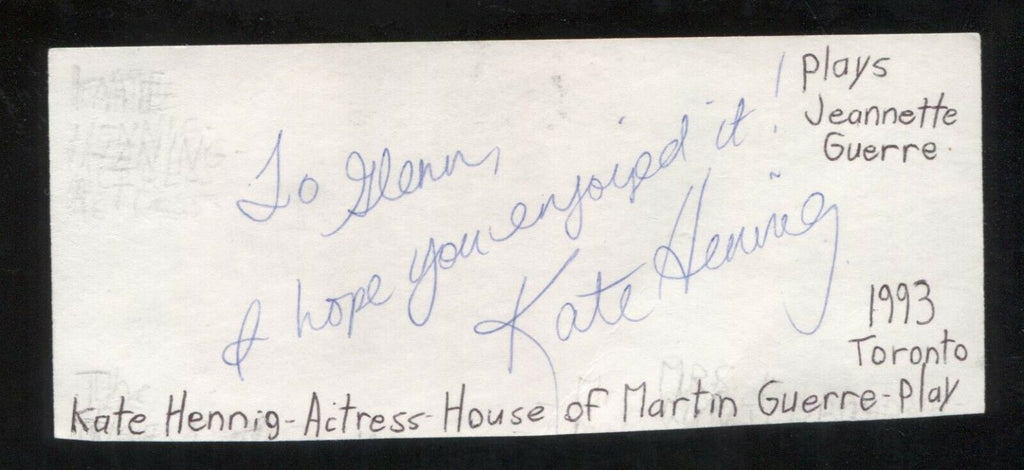 To Glenn,
I hope you enjoyed it!
Kate Hennig
plays
Jeannette
Guerre
1993
Toronto
Kate Hennig-Actress-House of Martin Guerre-Play
KATE
HENNIG